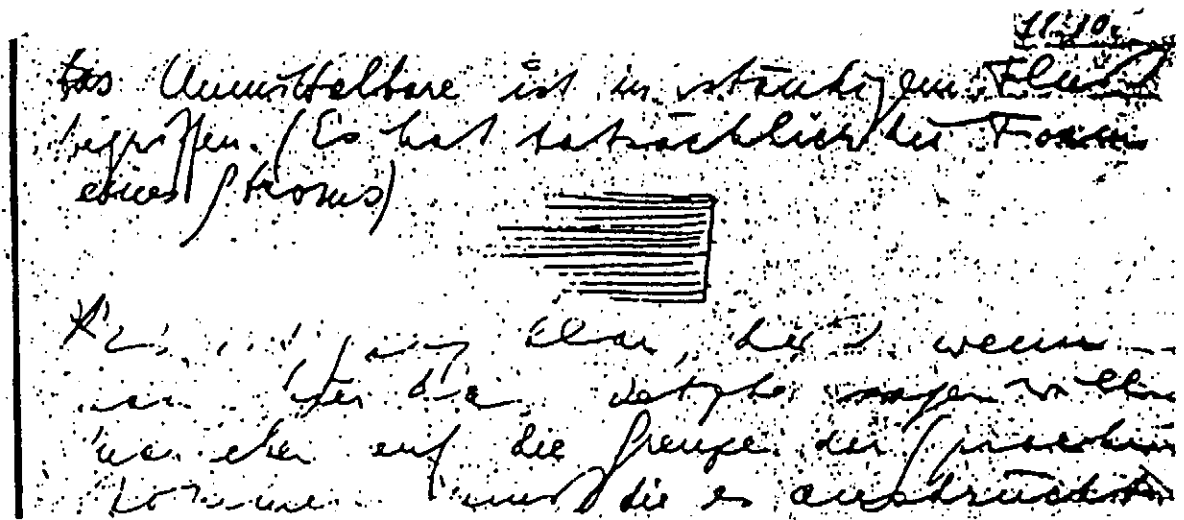 11.10.
Das Unmittelbare ist in ständigem Fluß
begriffen. (Es hat tatsächlich die Form
eines Stroms)
ganz klar, daß wenn
man hier das Letzte sagen will
man eben auf die Grenze der Sprache
kommen muß die es ausdrückt